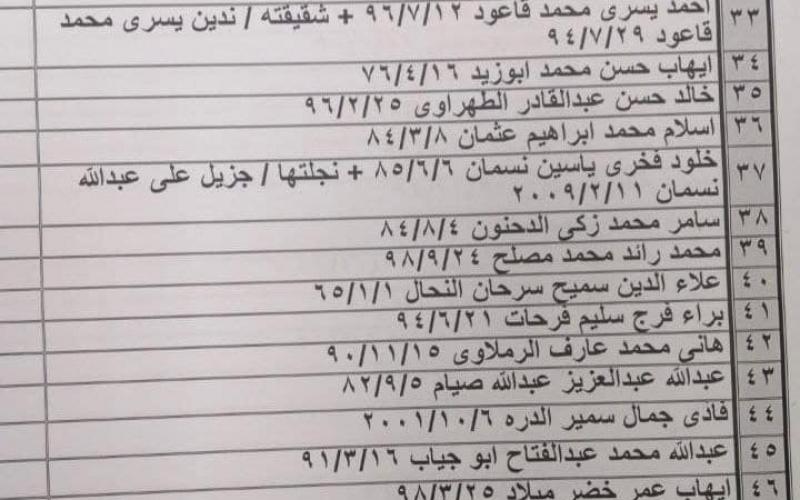 ٣٣ احمد يسرى محمد قاعود ٩٦/٧/١٢ + شقيقته / ندين يسرى محمد
قاعود ٩٤/٧/٢٩
٣٤ ايهاب حسن محمد ابوزيد ٧٦/٤/١٦
٣٥ خالد حسن عبدالقادر الطهراوى ٩٦/٢/٢٥
٣٦ اسلام محمد ابراهيم عثمان ٨٤/٣/٨
٣٧ خلود فخرى ياسين نسمان ٨٥/٦/٦ + نجلتها / جزيل على عبدالله
نسمان ٢٠٠٩/٢/١١
٣٨ سامر محمد زكى الدحنون ٨٤/٨/٤
٣٩ محمد رائد محمد مصلح ٩٨/٩/٢٤
٤٠ علاء الدين سميح سرحان النحال ٦٥/١/١
٤١ براء فرج سليم فرحات ٩٤/٦/٢١
٤٢ هانى محمد عارف الرملاوى ٩٠/١١/١٥
٤٣ عبدالله عبدالعزيز عبدالله صيام ٨٢/٩/٥
٤٤ فادى جمال سمير الدره ٢٠٠١/١٠/٦
٤٥ عبدالله محمد عبدالفتاح ابو جياب ٩١/٣/١٦
٤٦ ايهاب عمر خضر ميلاد ٩٨/٣/٢٥